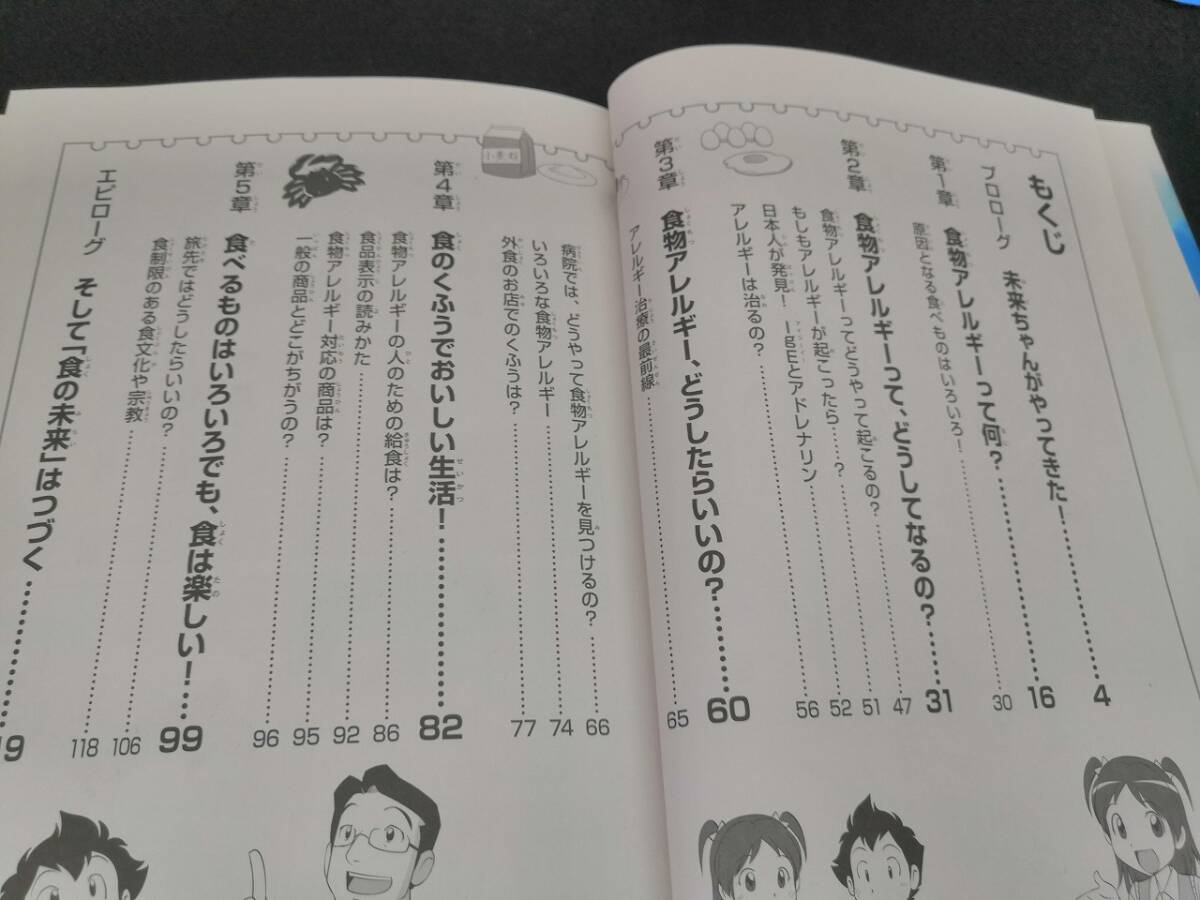 もくじ
プロローグ 未来ちゃんがやってきたー 4
第1章 食物アレルギーって何? 16
原因となる食べものはいろいろ! 30
第2章 食物アレルギーって、どうしてなるの? 31
食物アレルギーってどうやって起こるの? 47
もしもアレルギーが起こったら……? 51
日本人が発見! IgEとアドレナリン 52
アレルギーは治るの? 56
第3章 食物アレルギー、どうしたらいいの? 60
アレルギー治療の最前線 65
病院では、どうやって食物アレルギーを見つけるの? 66
いろいろな食物アレルギー 74
外食のお店でのくふうは? 77
小麦粉
第4章 食のくふうでおいしい生活! 82
食物アレルギーの人のための給食は? 86
食品表示の読みかた 92
食物アレルギー対応の商品は? 95
一般の商品とどこがちがうの? 96
第5章 食べるものはいろいろでも、食は楽しい! 99
旅先ではどうしたらいいの? 106
食制限のある食文化や宗教 118
エピローグ そして「食の未来」はつづく